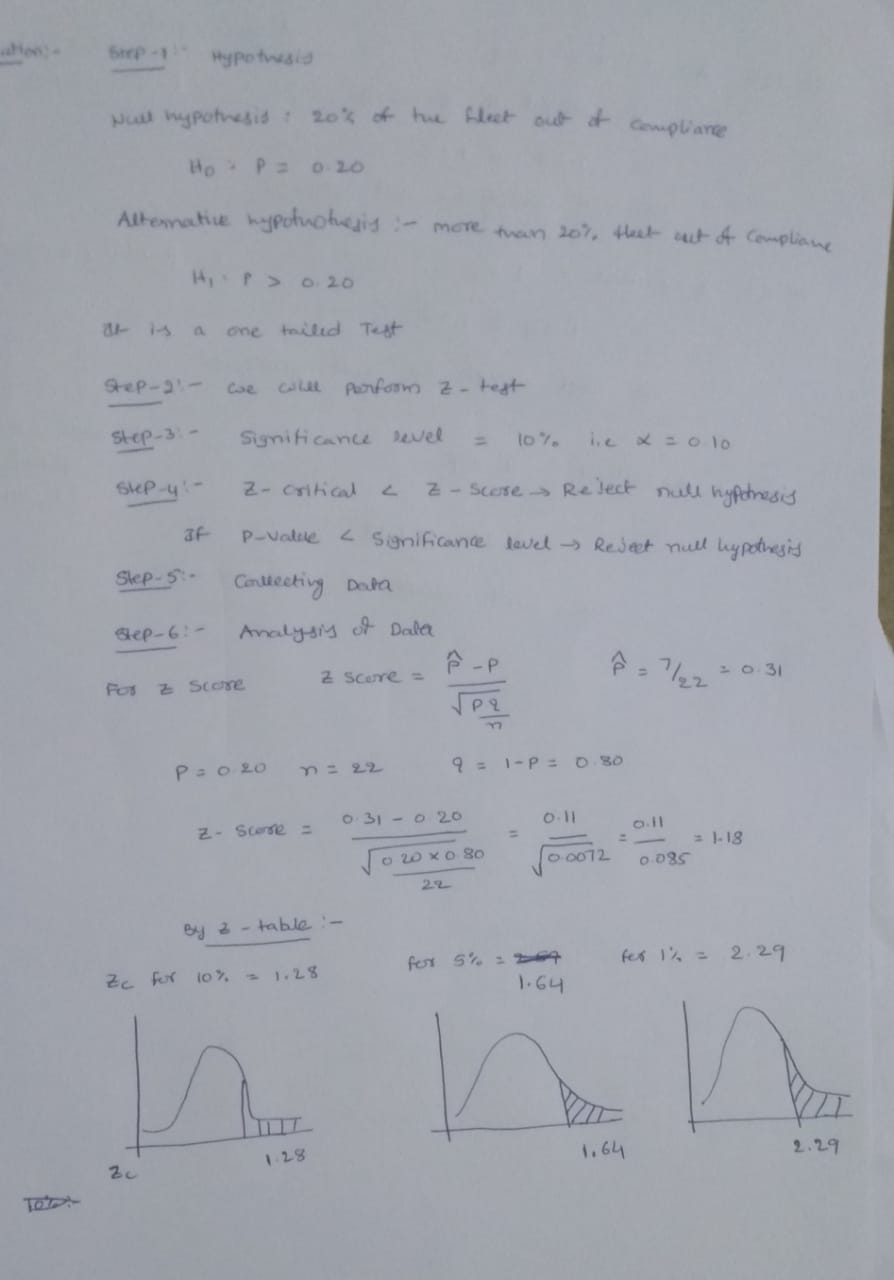 Step-1:- Hypothesis
Null hypothesis : 20% of the fleet out of compliance
H0 : P = 0.20
Alternative hypothothesis :- more than 20% fleet out of compliane
H1 : P > 0.20
It is a one tailed Test
Step-2:- we will perform z-test
Step-3:- Significance level = 10% i.e α = 0.10
Step-4:- Z-critical < Z-score → Reject null hypothesis
If P-value < Significance level → Reject null hypothesis
Step-5:- Collecting Data
Step-6:- Analysis of Data
For z score Z score = (p̂ - P) / √(pq/n) p̂ = 7/22 = 0.31
P = 0.20 n = 22 q = 1-P = 0.80
Z-score = (0.31 - 0.20) / √(0.20 x 0.80 / 22) = 0.11 / √0.0072 = 0.11 / 0.085 = 1.18
By z-table :-
Zc for 10% = 1.28 for 5% = 1.64 for 1% = 2.29
1.28 1.64 2.29
Zc